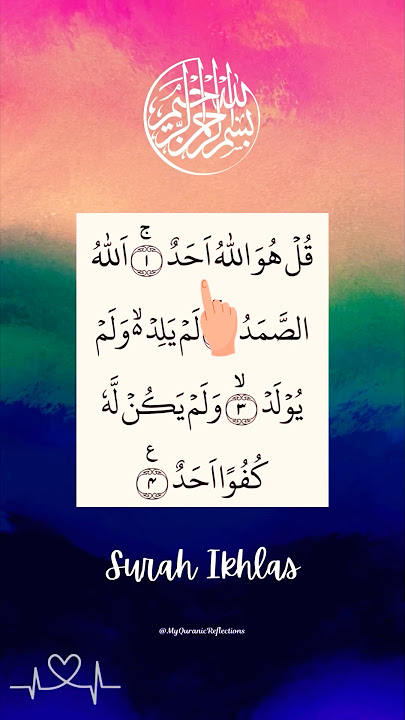 بسم الله الرحمن الرحيم
قُلْ هُوَ اللّٰهُ اَحَدٌ ۚ ﴿۱﴾ اَللّٰهُ
الصَّمَدُ لَمْ يَلِدْ ۙ۬ وَلَمْ
يُوْلَدْ ۙ ﴿۳﴾ وَلَمْ يَكُنْ لَّهٗ
كُفُوًا اَحَدٌ ﴿۴﴾ ع
Surah Ikhlas
@MyQuranicReflections